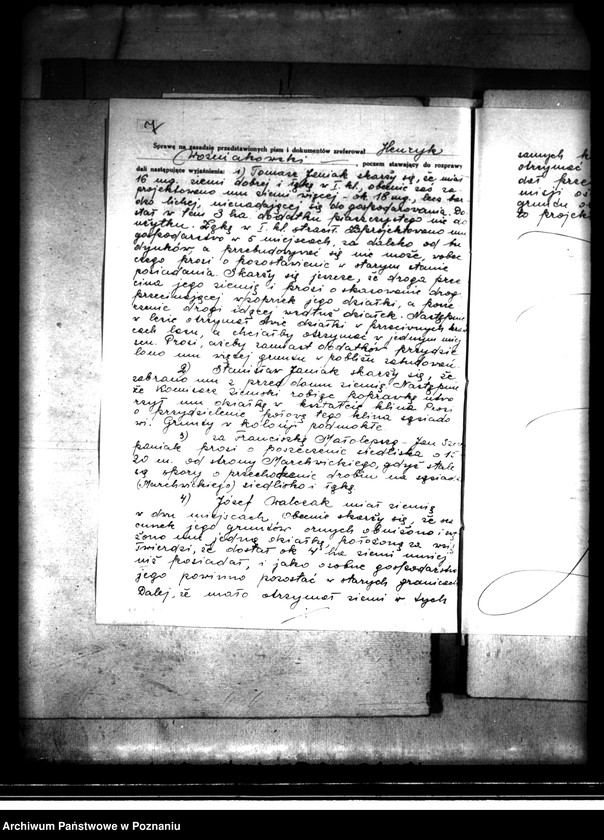 Sprawę na zasadzie przedstawionych pism i dokumentów zreferował Henryk
Woźniakowski, poczem stawający do rozprawy
dali następujące wyjaśnienia: 1) Tomasz Janiak skarży się, że miał
16 mg. ziemi dobrej i łąkę w I. kl., obecnie zaś za-
projektowano mu ziemi więcej - ok. 18 mg., lecz bar-
dzo lichej, nienadającej się do gospodarowania. Do-
stał w tem 3 ha dodatku piaszczystego nie do
użytku. Łąkę w I. kl. stracił. Zaprojektowano mu
gospodarstwo w 5 miejscach, za daleko od bu-
dynków, a przebudowywać się nie może, wobec
czego prosi o pozostawienie w starym stanie
posiadania. Skarży się jeszcze, że droga prze-
cina jego ziemię i prosi o skasowanie drogi
przecinającej wpoprzek jego działki, a
drogi idącej wzdłuż działek. Następnie
w lesie otrzymał dwie działki w przeciwnych
cach lasu, a chciałby otrzymać w jednym miej-
scu. Prosi, ażeby zamiast dodatków przydzie-
lono mu więcej gruntu w pobliżu zabudowań.
2) Stanisław Janiak skarży się, że
zabrano mu z przed domu ziemię. Następnie
że Komisarz ziemski robiąc poprawkę utwo-
rzył mu działkę w kształcie klina. Prosi
o przydzielenie połowy tego klina sąsiado-
wi. Grunty w kolonji podmokłe.
3) za Franciszkę Małolepszą - Jan Szcze-
paniak prosi o poszerzenie siedliska o 15-
20 m. od strony Marchwickiego, gdyż stale
są spory o przechodzenie drobiu na sąsiada
(Marchwickiego) siedlisko i łąkę.
4) Józef Walczak miał ziemię
w dwu miejscach. Obecnie skarży się, że sza-
cunek jego gruntów ornych obniżono i wy-
żono mu jedną działkę, położoną za wsią.
Twierdzi, że dostał ok 4 ha ziemi mniej
niż posiadał, i jako osobne gospodarstwo
jego powinno pozostać w starych granicach.
Dalej, że mało otrzymał ziemi w tych
samych k
otrzymać
dał prze
miejsc os
gruntu o
to projekt
Archiwum Państwowe w Poznaniu